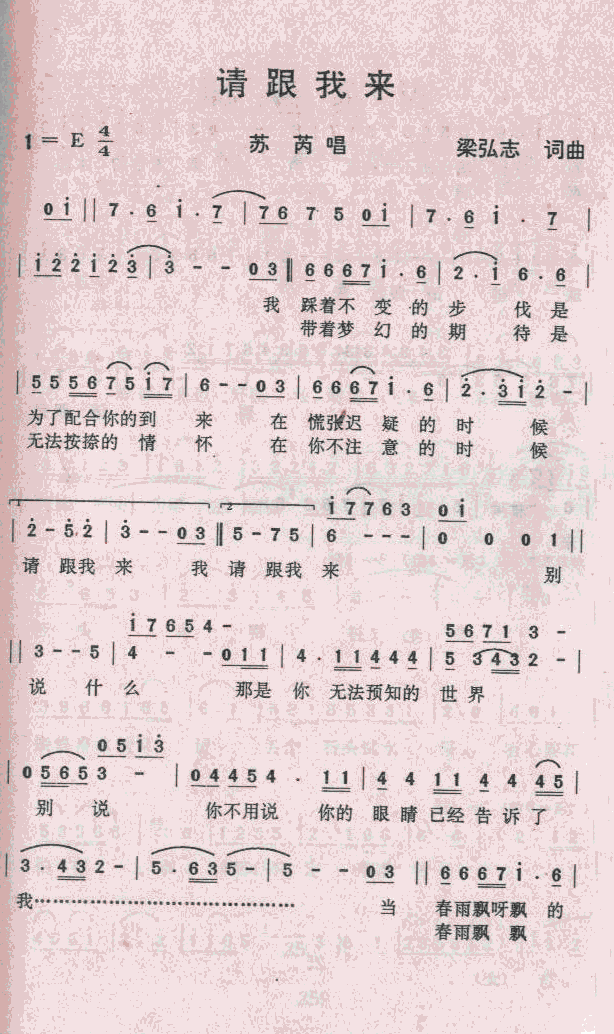 请跟我来
1 = E 4/4 苏芮唱 梁弘志 词曲
0 i || 7 . 6 i . 7 | 7 6 7 5 0 i | 7 . 6 i . 7 |
| i 2 2 i 2 3 | 3 - - 0 3 || 6 6 6 7 i . 6 | 2 . i 6 . 6 |
我 踩着不 变 的 步 伐 是
带着梦 幻 的 期 待是
| 5 5 5 6 7 5 i 7 | 6 - - 0 3 | 6 6 6 7 i . 6 | 2 . 3 i 2 - |
为了配合你的到 来 在 慌张迟 疑 的 时 候
无法按捺的 情 怀 在 你不注 意 的 时 候
1 2 i 7 7 6 3 0 i
| 2 - 5 2 | 3 - - 0 3 || 5 - 7 5 | 6 - - - | 0 0 0 1 ||
请 跟我 来 我 请 跟我 来 别
i 7 6 5 4 - 5 6 7 1 3 -
|| 3 - - 5 | 4 - - 0 1 1 | 4 . 1 1 4 4 4 | 5 3 4 3 2 - |
说 什 么 那是 你 无法预知的 世 界
0 5 i 3
| 0 5 6 5 3 - | 0 4 4 5 4 . 1 1 | 4 4 1 1 4 4 4 5 |
别 说 你不用说 你的 眼 睛 已经 告 诉 了
| 3 . 4 3 2 - | 5 . 6 3 5 - | 5 - - 0 3 || 6 6 6 7 i . 6 |
我…………………………… 当 春雨飘呀飘 的
春雨飘 飘